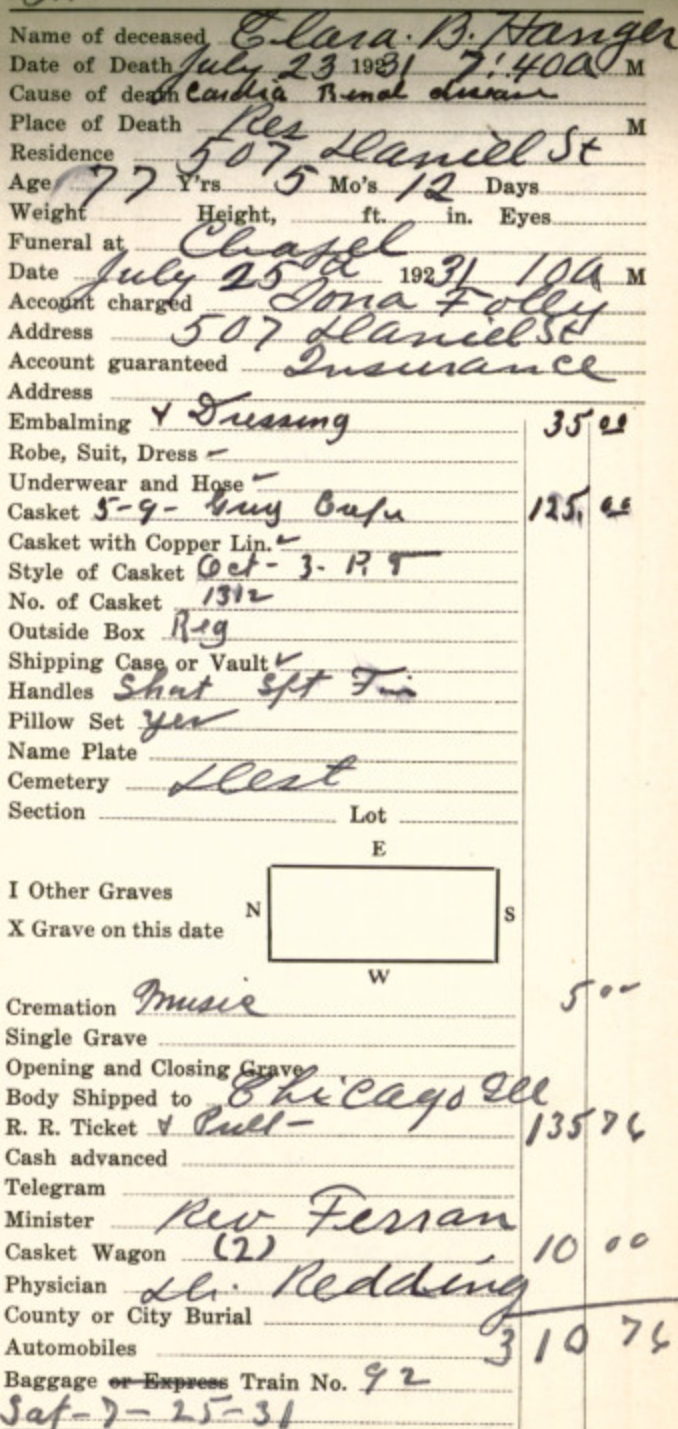 Name of deceased Clara. B. Hanger
Date of Death July 23 1931 7:40a M
Cause of death Cardia Renal disease
Place of Death Res M
Residence 507 Daniell St
Age 77 Y'rs 5 Mo's 12 Days
Weight Height, ft. in. Eyes
Funeral at Chapel
Date July 25 1931 10a M
Account charged Iona Folley
Address 507 Daniell St
Account guaranteed Insurance
Address
Embalming & Dressing 35 00
Robe, Suit, Dress
Underwear and Hose
Casket 5-9- Grey 125. 00
Casket with Copper Lin.
Style of Casket Oct- 3- P. T
No. of Casket 1312
Outside Box Reg
Shipping Case or Vault
Handles Short
Pillow Set yes
Name Plate
Cemetery
Section Lot
E
I Other Graves
N S
X Grave on this date
W
Cremation Music 5 00
Single Grave
Opening and Closing Grave
Body Shipped to Chicago Ill
R. R. Ticket & Pull- 135 76
Cash advanced
Telegram
Minister Rev Ferran
Casket Wagon (2) 10 00
Physician Dr. Redding
County or City Burial
Automobiles 310 76
Baggage or Express Train No. 92
Sat-7-25-31